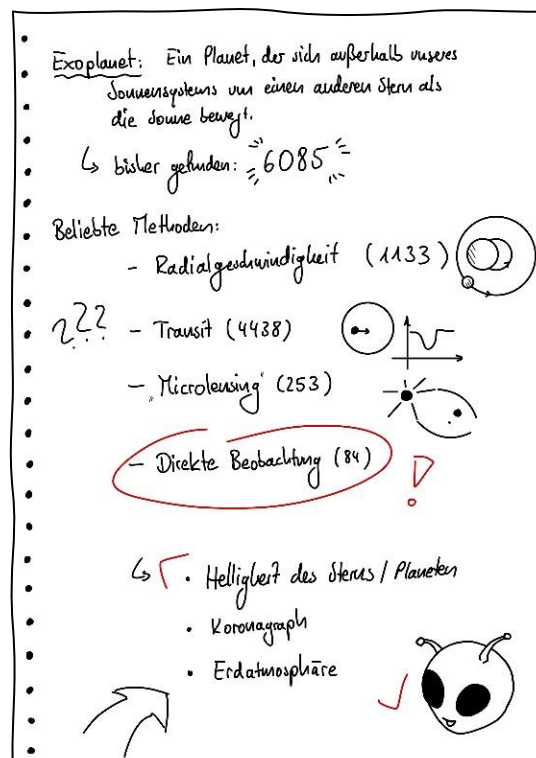 Exoplanet: Ein Planet, der sich außerhalb unseres
Sonnensystems um einen anderen Stern als
die Sonne bewegt.
↳ bisher gefunden: 6085
Beliebte Methoden:
- Radialgeschwindigkeit (1133)
??? - Transit (4438)
- "Microlensing" (253)
- Direkte Beobachtung (84) !
↳ • Helligkeit des Sterns / Planeten
• Koronagraph
• Erdatmosphäre